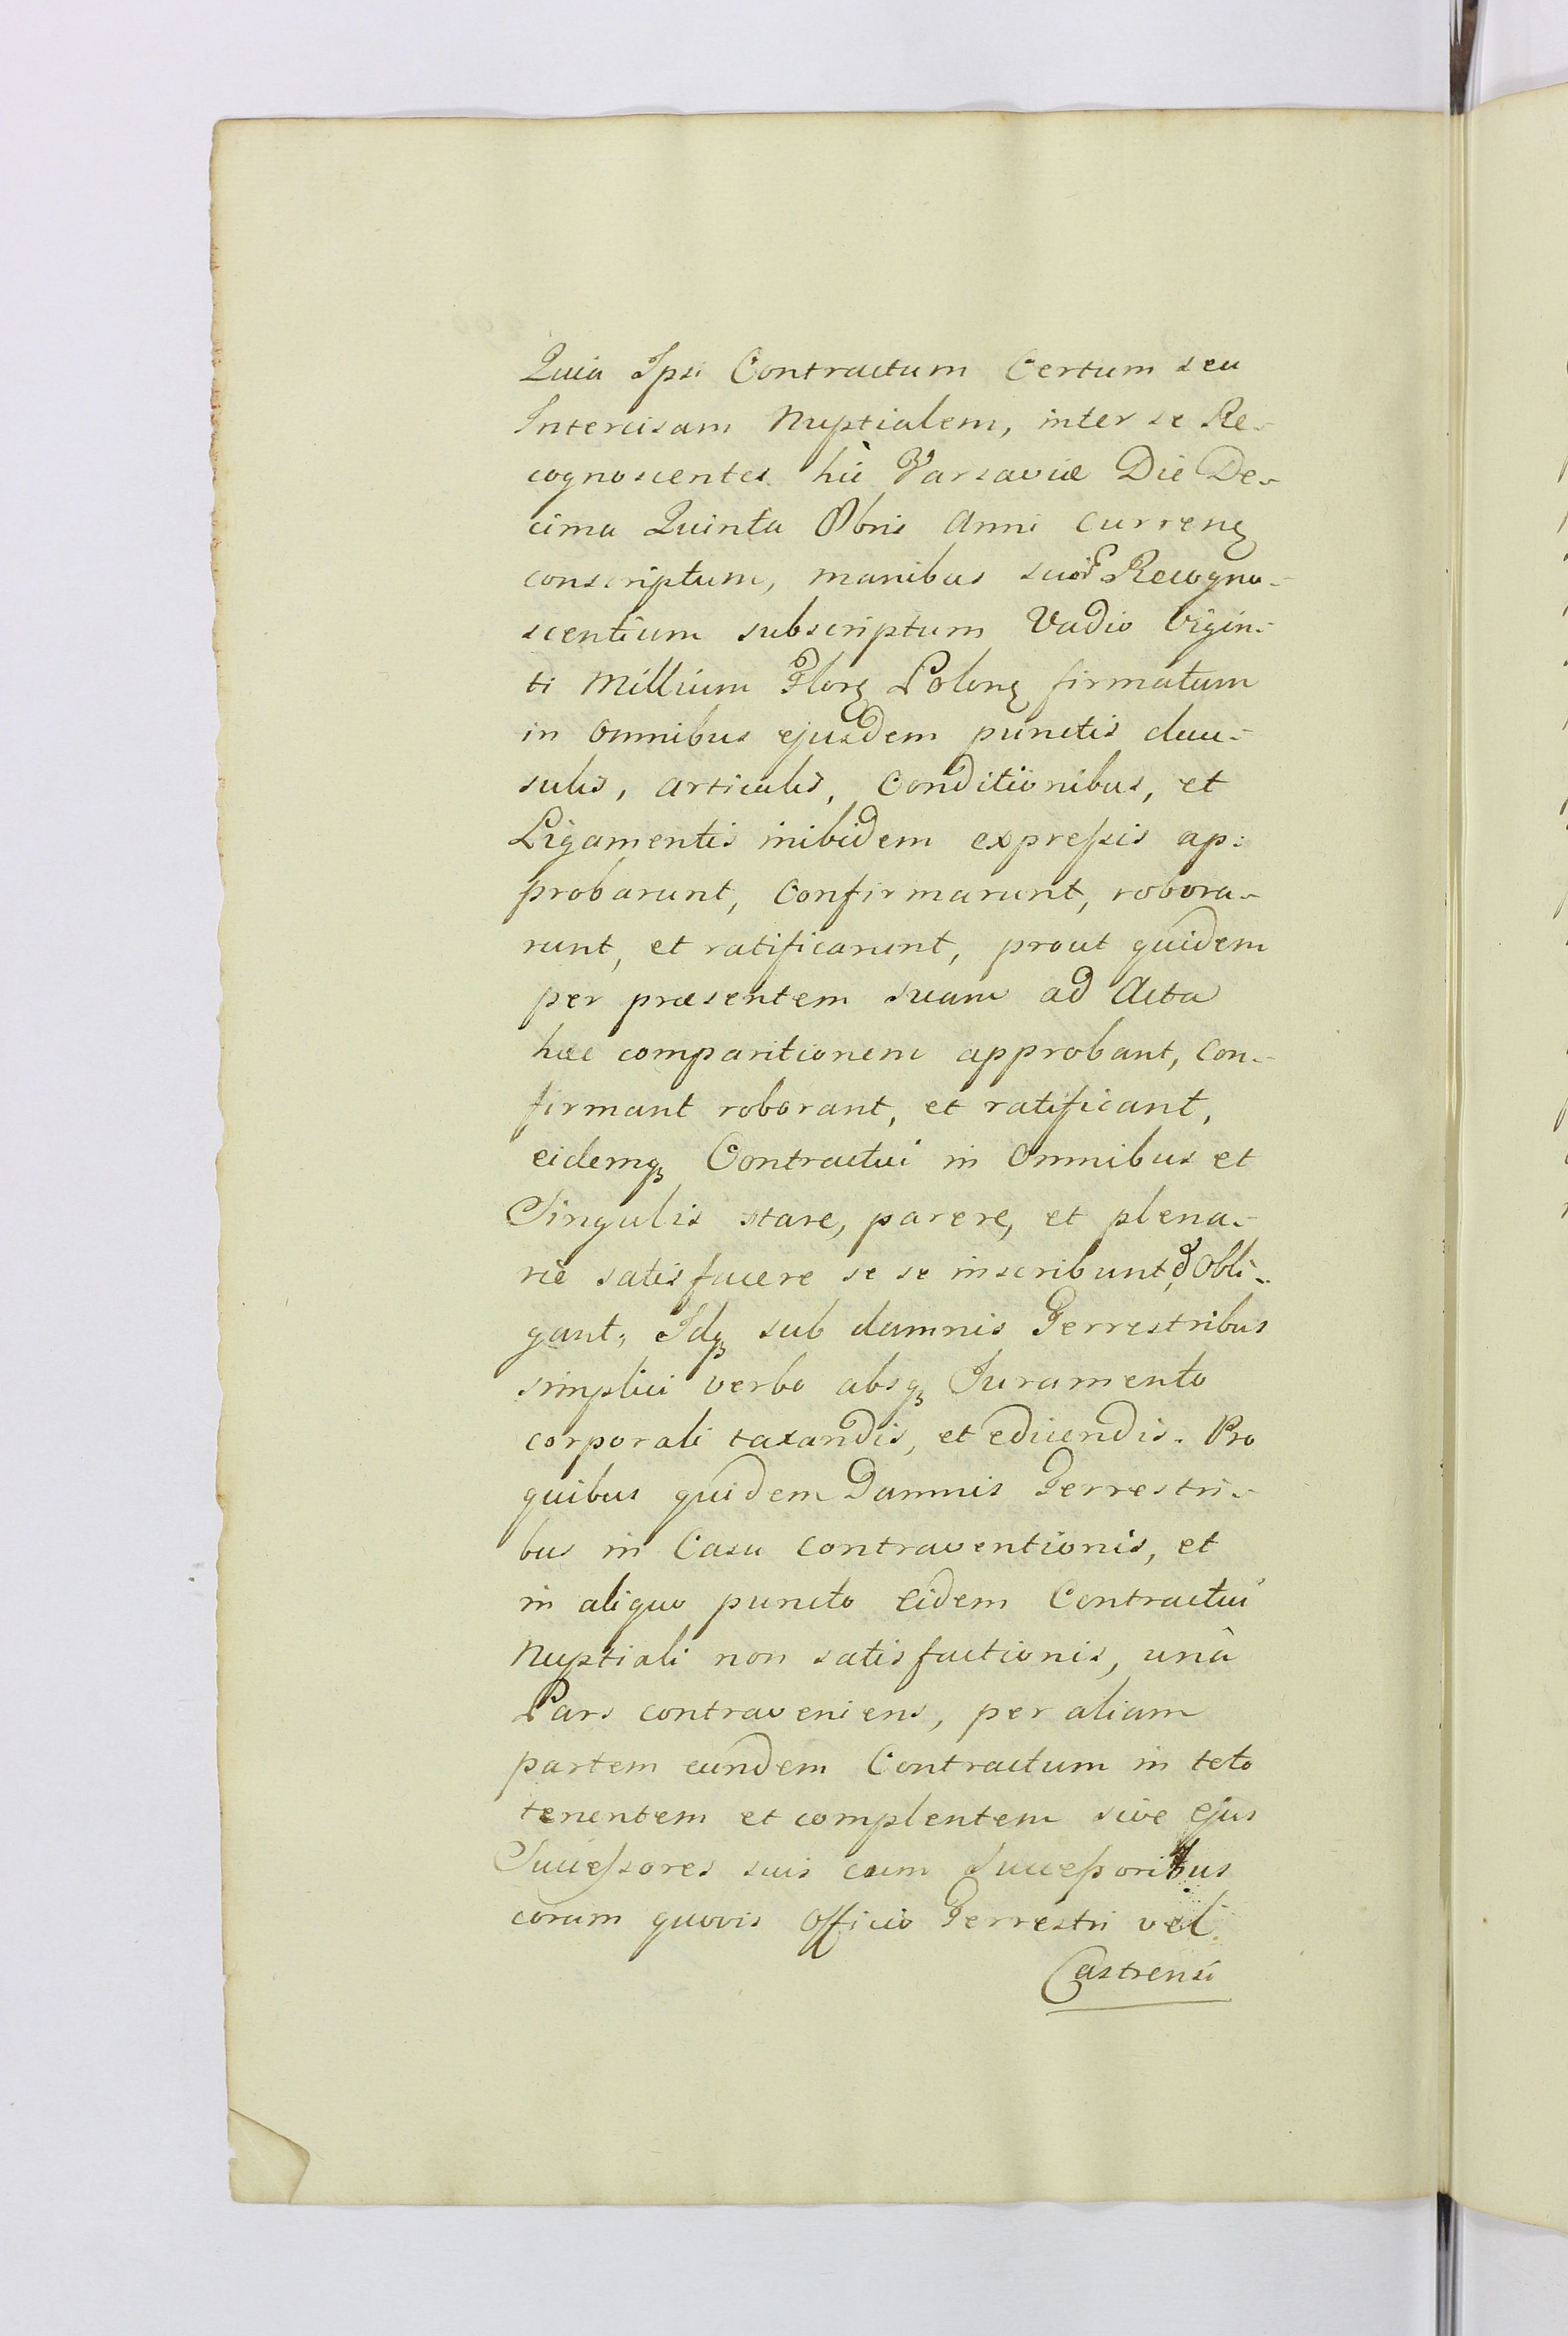 Quia Ipsi Contractum Certum seu
Intercisam Nuptialem, inter se Re-
cognoscentes hìc Varsaviæ Die De-
cima Quinta Obris Anni Curreng
conscriptum, manibus Recogno-
scentium subscriptum Vadio Vigin-
ti Millium Florg Polong firmatum
in Omnibus ejusdem punctis clau-
sulis, articulis, Conditionibus, et
Ligamentis inibidem expressis ap:
probarunt, Confirmarunt, robora-
runt, et ratificarunt, prout quidem
per præsentem suam ad Acta
hæc comparitionem approbant, Con-
firmant roborant, et ratificant,
eidemqȝ Contractui in Omnibus et
Singulis stare, parere, et plena-
riè satisfacere se se inscribunt, & Obli-
gant, Idqȝ sub damnis Terrestribus
simplici verbo absqȝ Juramento
corporali taxandis, et edicendis. Pro
quibus quidem Damnis Terrestri-
bus in Casu contraventionis, et
in aliquo puncto Eidem Contractui
Nuptiali non satisfactionis, unâ
Pars contraveniens, per aliam
partem eundem Contractum in toto
tenentem et complentem sive Ejus
Successores suis cum Successoribus
coram quovis Officio Terrestri vel
Castrensi